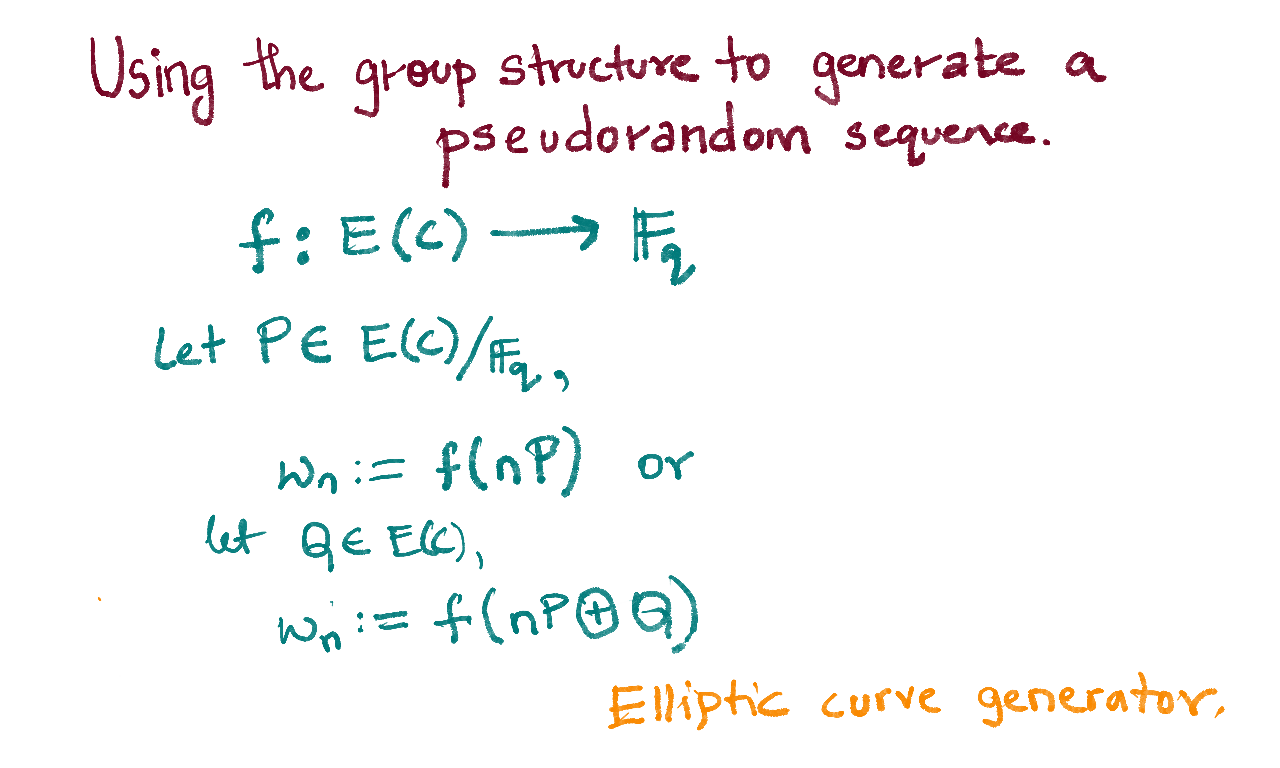 Using the group structure to generate a
pseudorandom sequence.
f : E(C) ⟶ 𝔽q
Let P ∈ E(C)/𝔽q,
wn := f(nP) or
let Q ∈ E(C),
wn := f(nP ⊕ Q)
Elliptic curve generator.